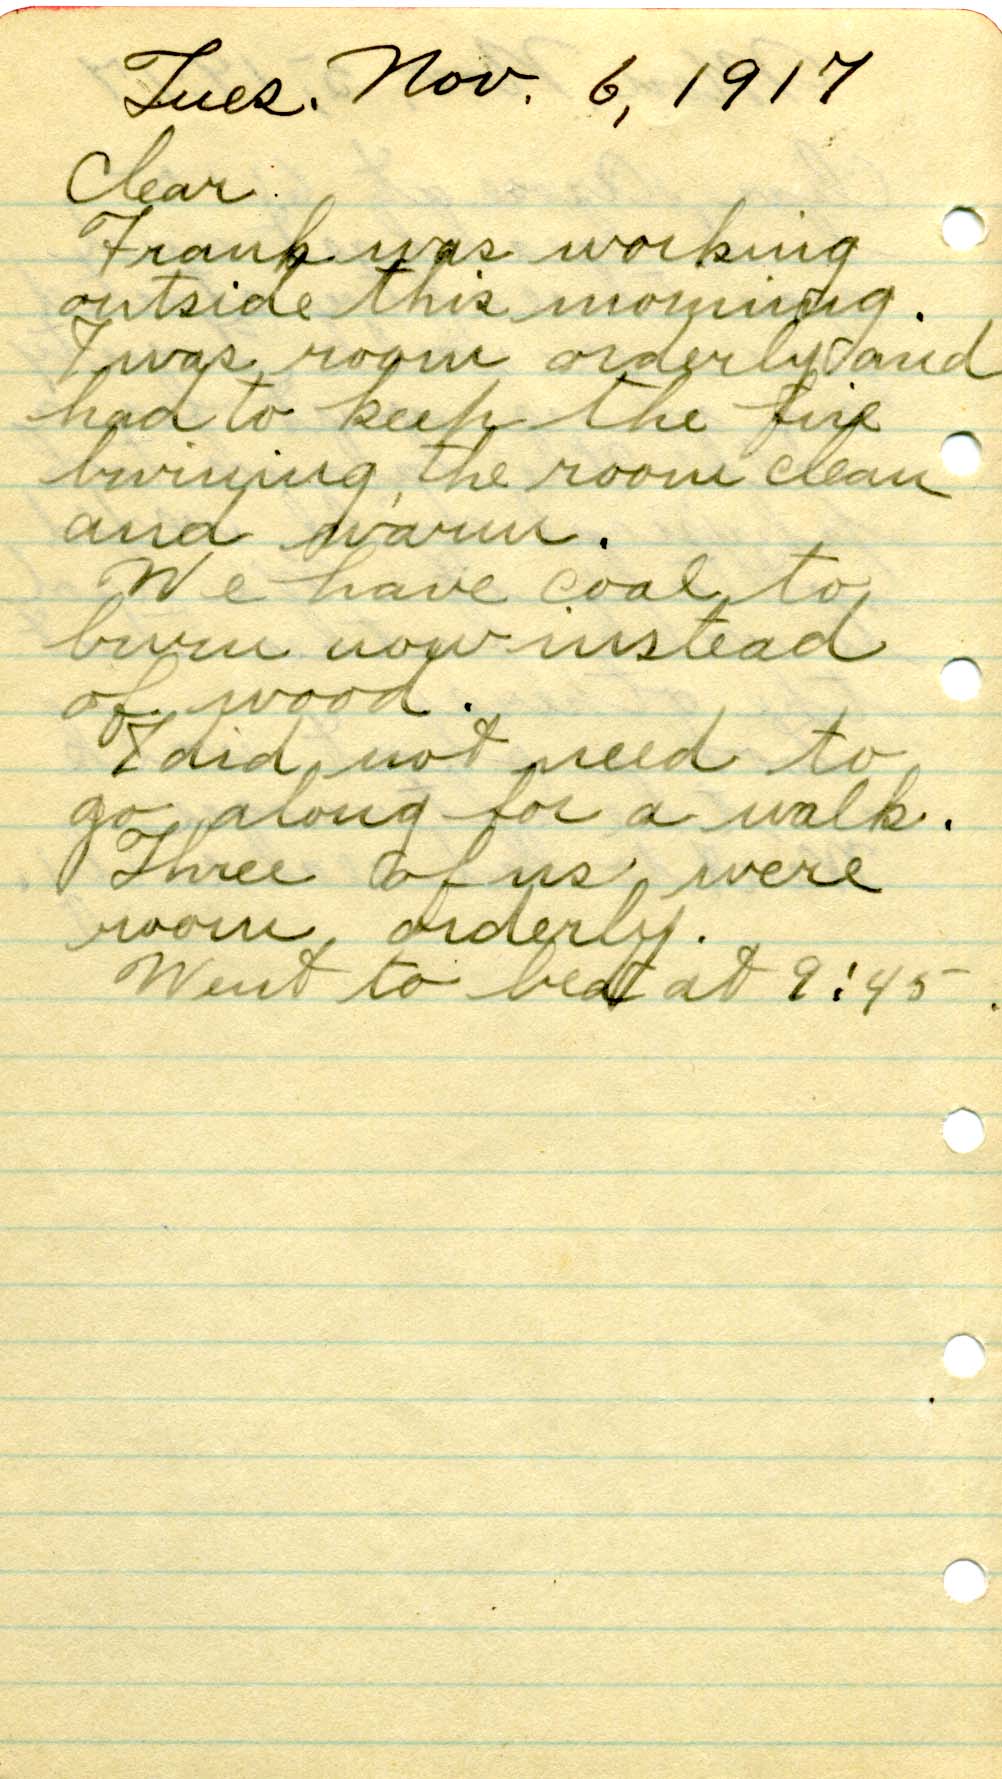 Tues. Nov. 6, 1917
Clear.
Frank was working
outside this morning.
I was room orderly and
had to keep the fire
burning, the room clean
and warm.
We have coal to
burn now instead
of wood.
I did not need to
go along for a walk.
Three of us were
room orderly.
Went to bed at 9:45.